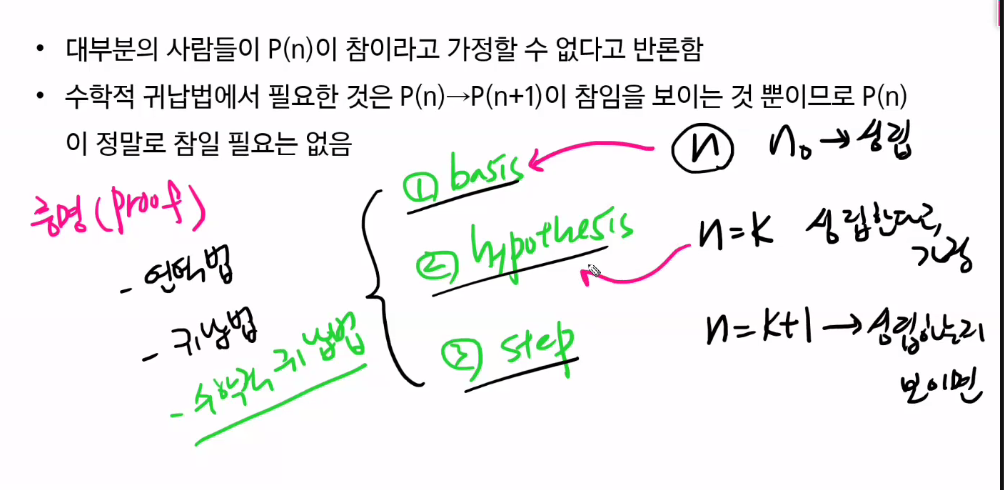 • 대부분의 사람들이 P(n)이 참이라고 가정할 수 없다고 반론함
• 수학적 귀납법에서 필요한 것은 P(n)→P(n+1)이 참임을 보이는 것 뿐이므로 P(n)
이 정말로 참일 필요는 없음
증명(proof)
- 연역법
- 귀납법
- 수학적 귀납법
① basis
② hypothesis
③ step
n n₀→성립
n=k 성립한다고,
가정
n=k+1→성립하는지
보이면